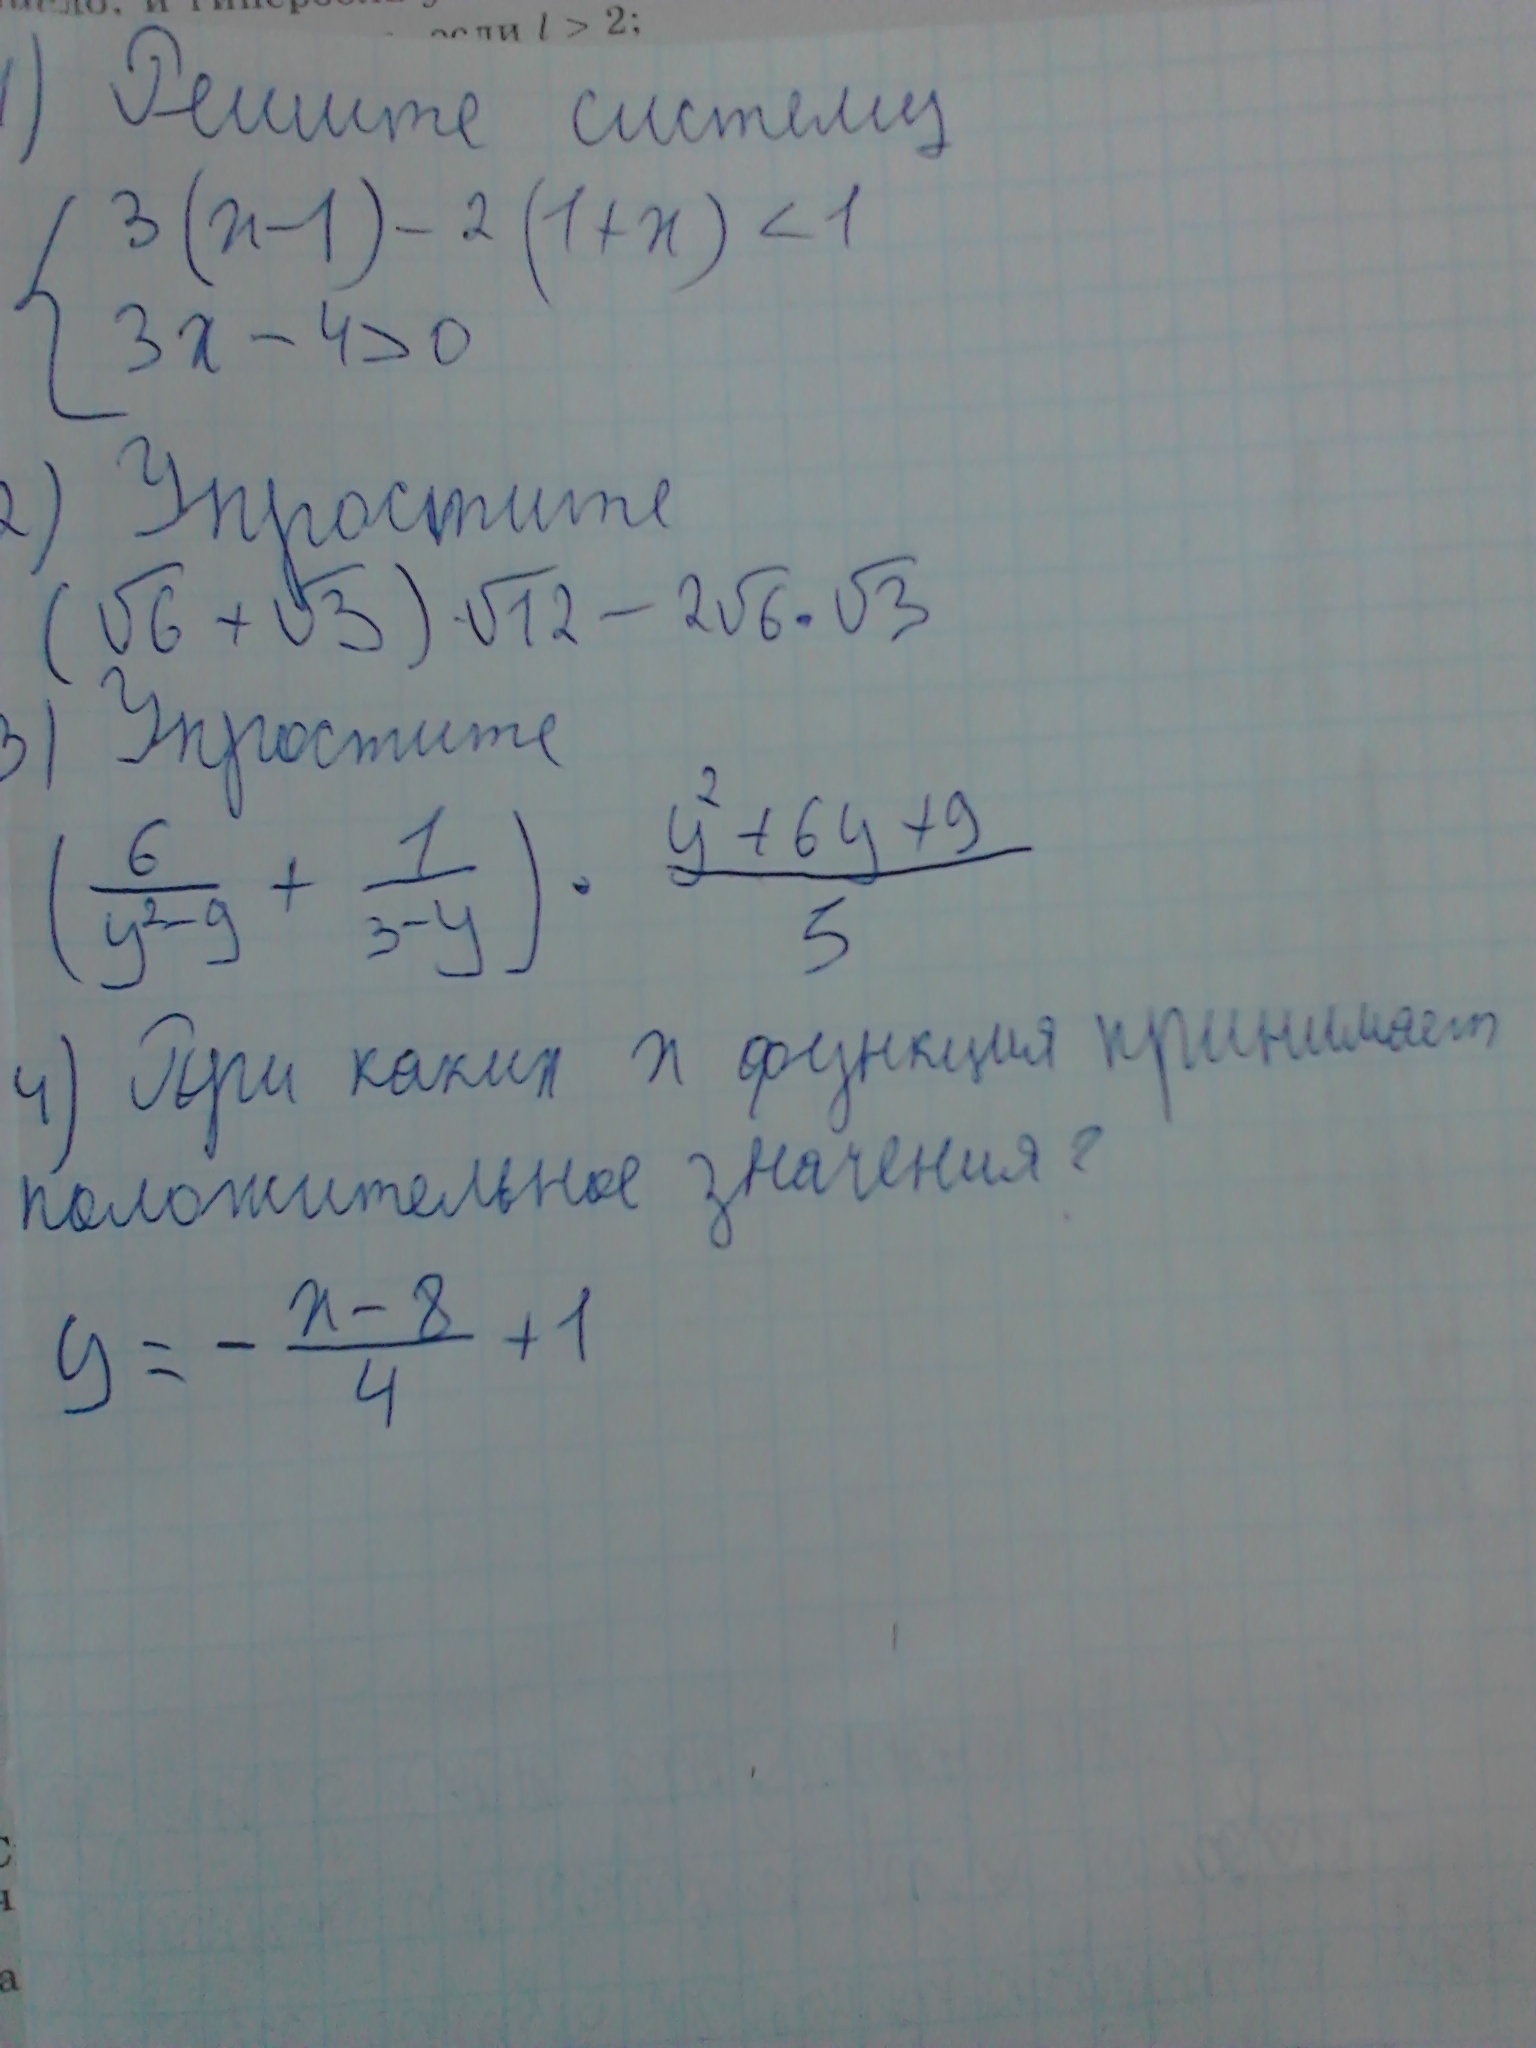 если l > 2;
1) Решите систему
3(x-1)-2(1+x)<1
3x-4>0
2) Упростите
(√6+√3)·√12-2√6·√3
3) Упростите
(6/(y²-9) + 1/(3-y)) · (y²+6y+9)/5
4) При каких x функция принимает
положительное значения?
y = - (x-8)/4 + 1
с
я
а